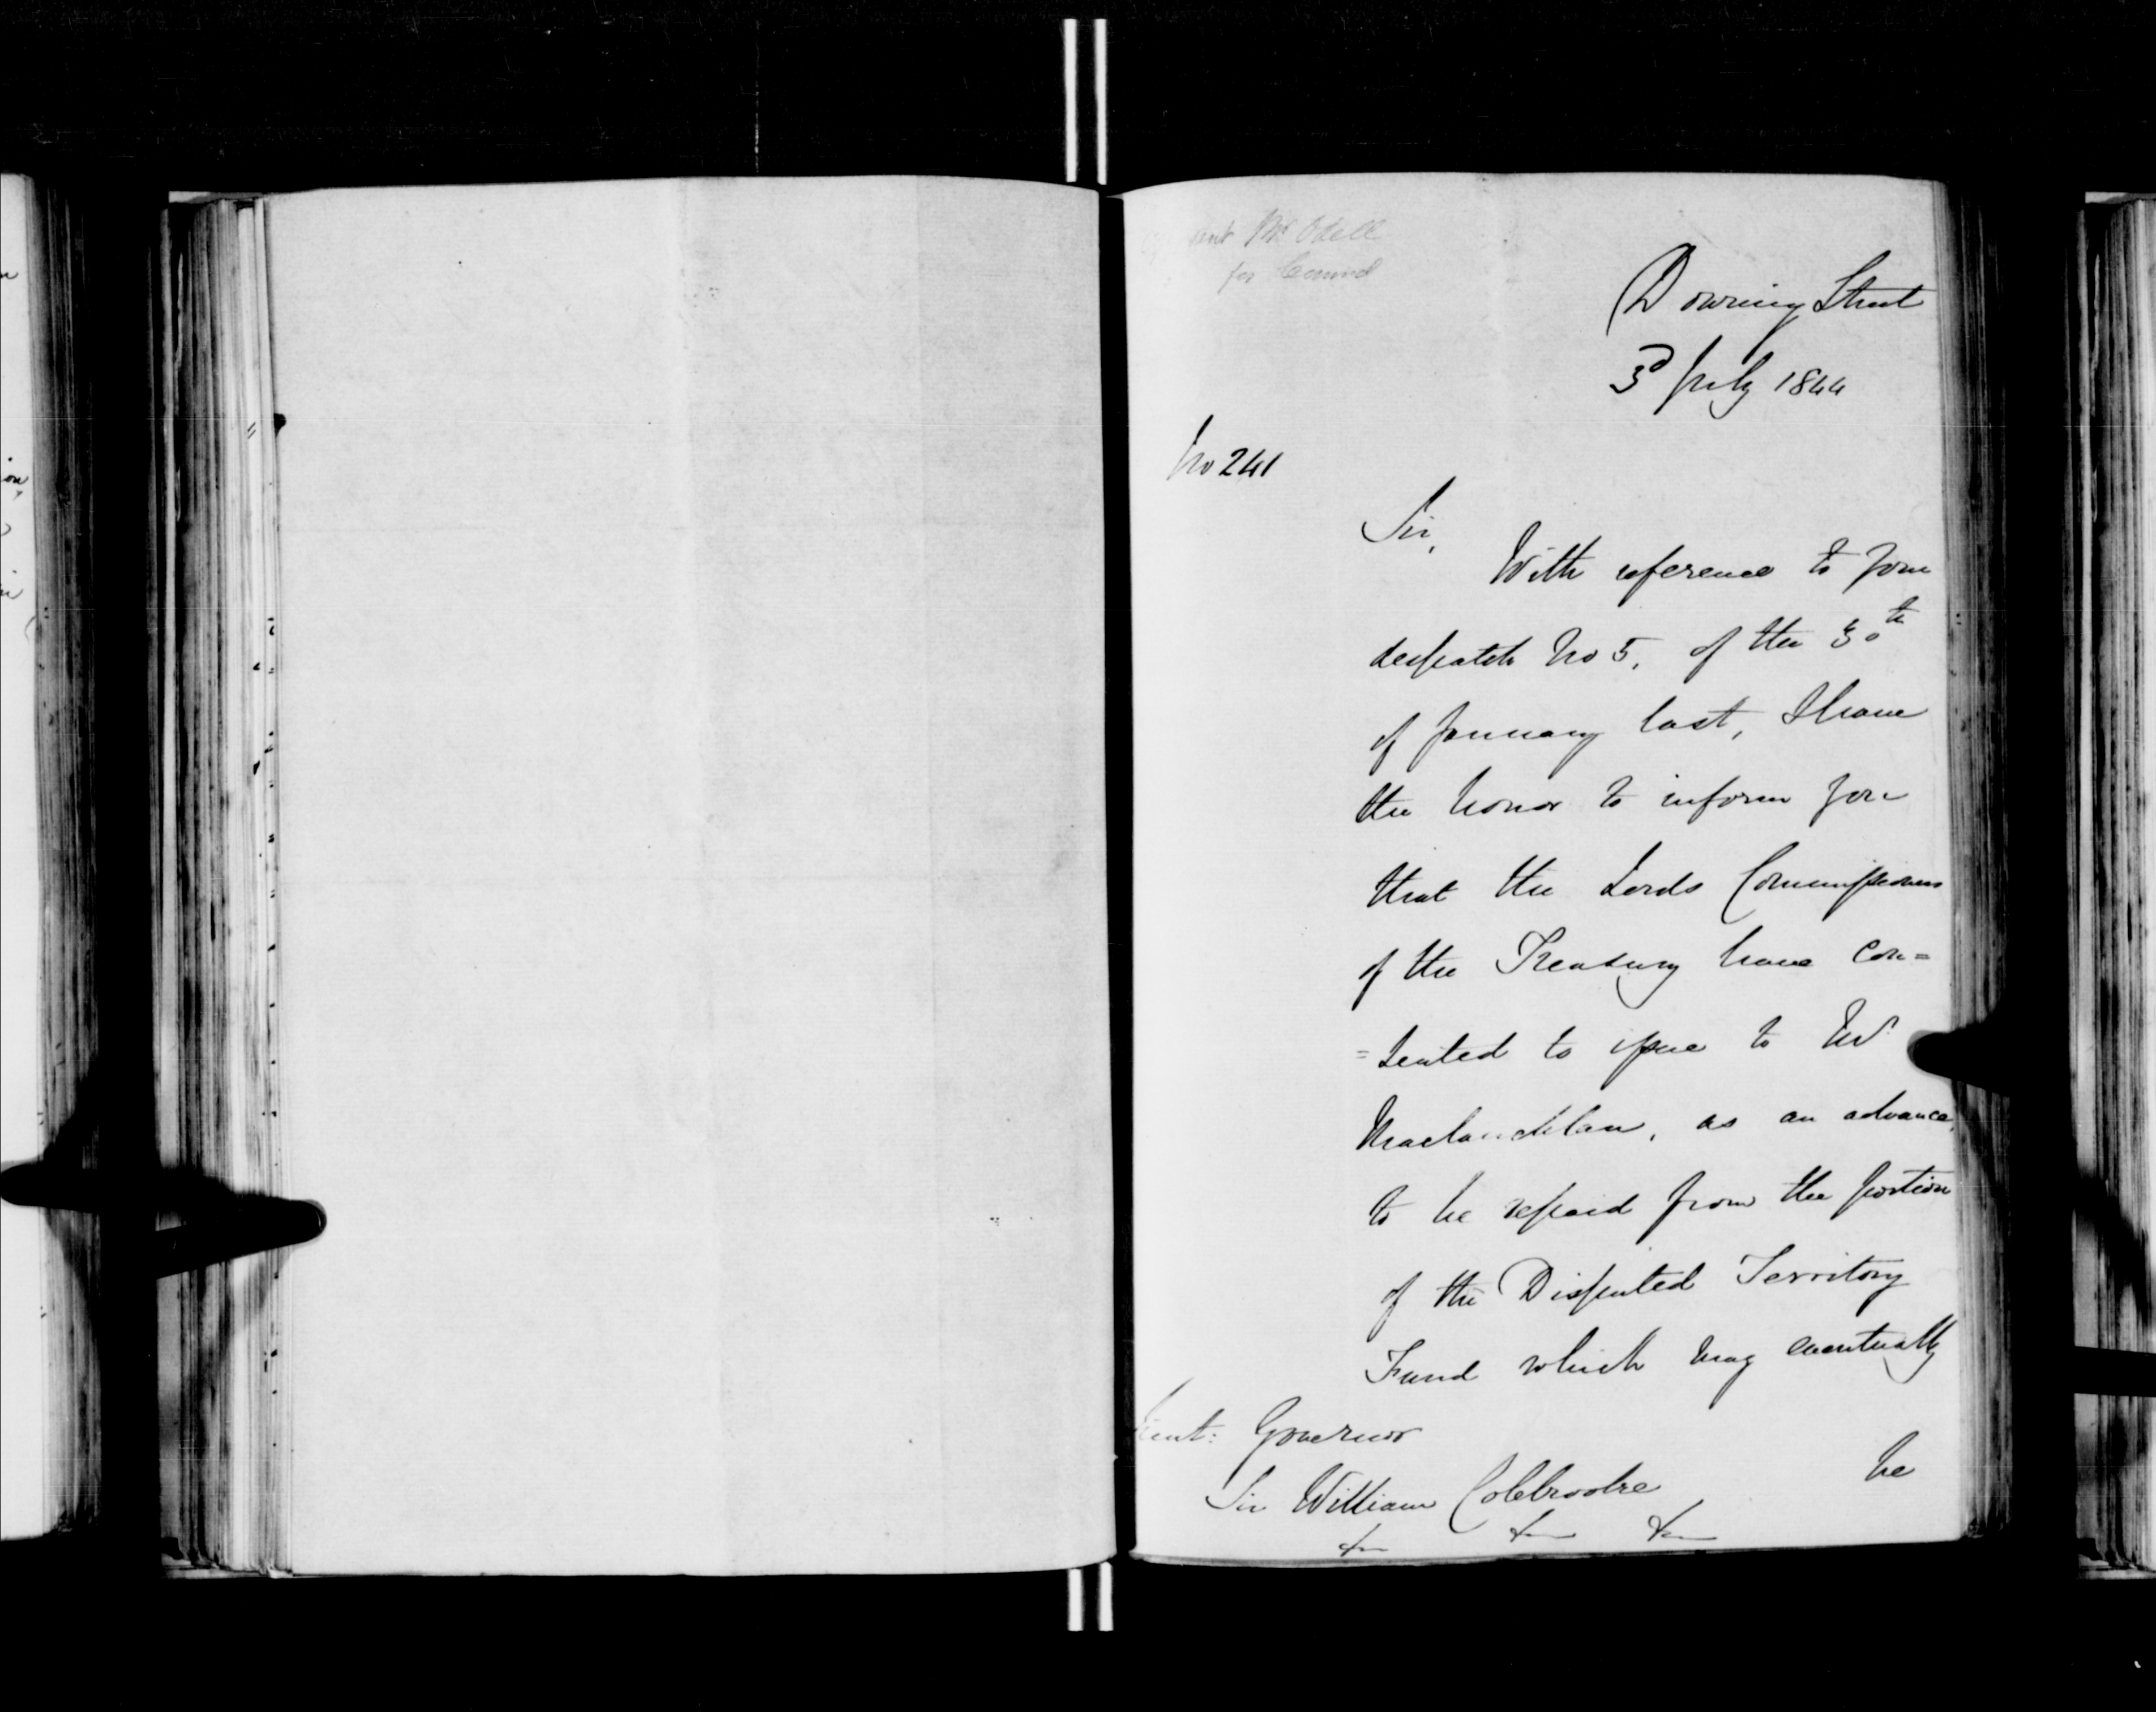 Mr Odell
for Council
Downing Street
3d July 1844
No 241
Sir,
With reference to your
despatch No 5, of the 30th
of January last, I have
the honor to inform you
that the Lords Commissioners
of the Treasury have con=
=sented to issue to Mr
Maclauchlan, as an advance,
to be repaid from the portion
of the Disputed Territory
Fund which may eventually
be
Lieut: Governor
Sir William Colebrooke
&c &c &c